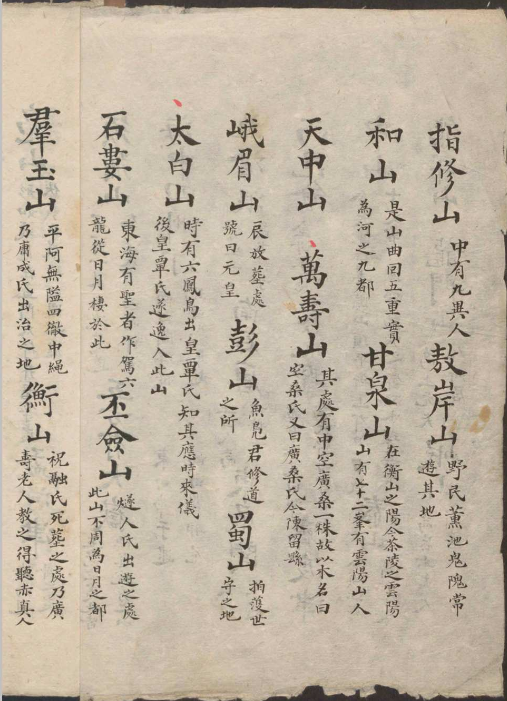 指修山 中有九異人 敖岸山 野民薰池鬼隗常遊其地
和山 是山曲回五重實為河之九都 甘泉山 在衡山之陽今茶陵之雲陽山有七十二峯有雲陽山人
天中山 萬壽山 其處有中空廣桑一株故以木名曰空桑氏又曰廣桑氏今陳留縣
峨眉山 辰放墓處號曰元皇 彭山 魚鳧君修道之所 蜀山 拍蒦世守之地
太白山 時有六鳳鳥出皇覃氏知其應時來儀後皇覃氏遂逸入此山
石婁山 東海有聖者作駕六龍從日月棲於此 丕僉山 燧人氏出遊之處此山不周為日月之都
羣玉山 平阿無隘四徹中繩乃庸成氏出治之地 衡山 祝融氏死墓之處乃廣壽老人教之得聽赤真人